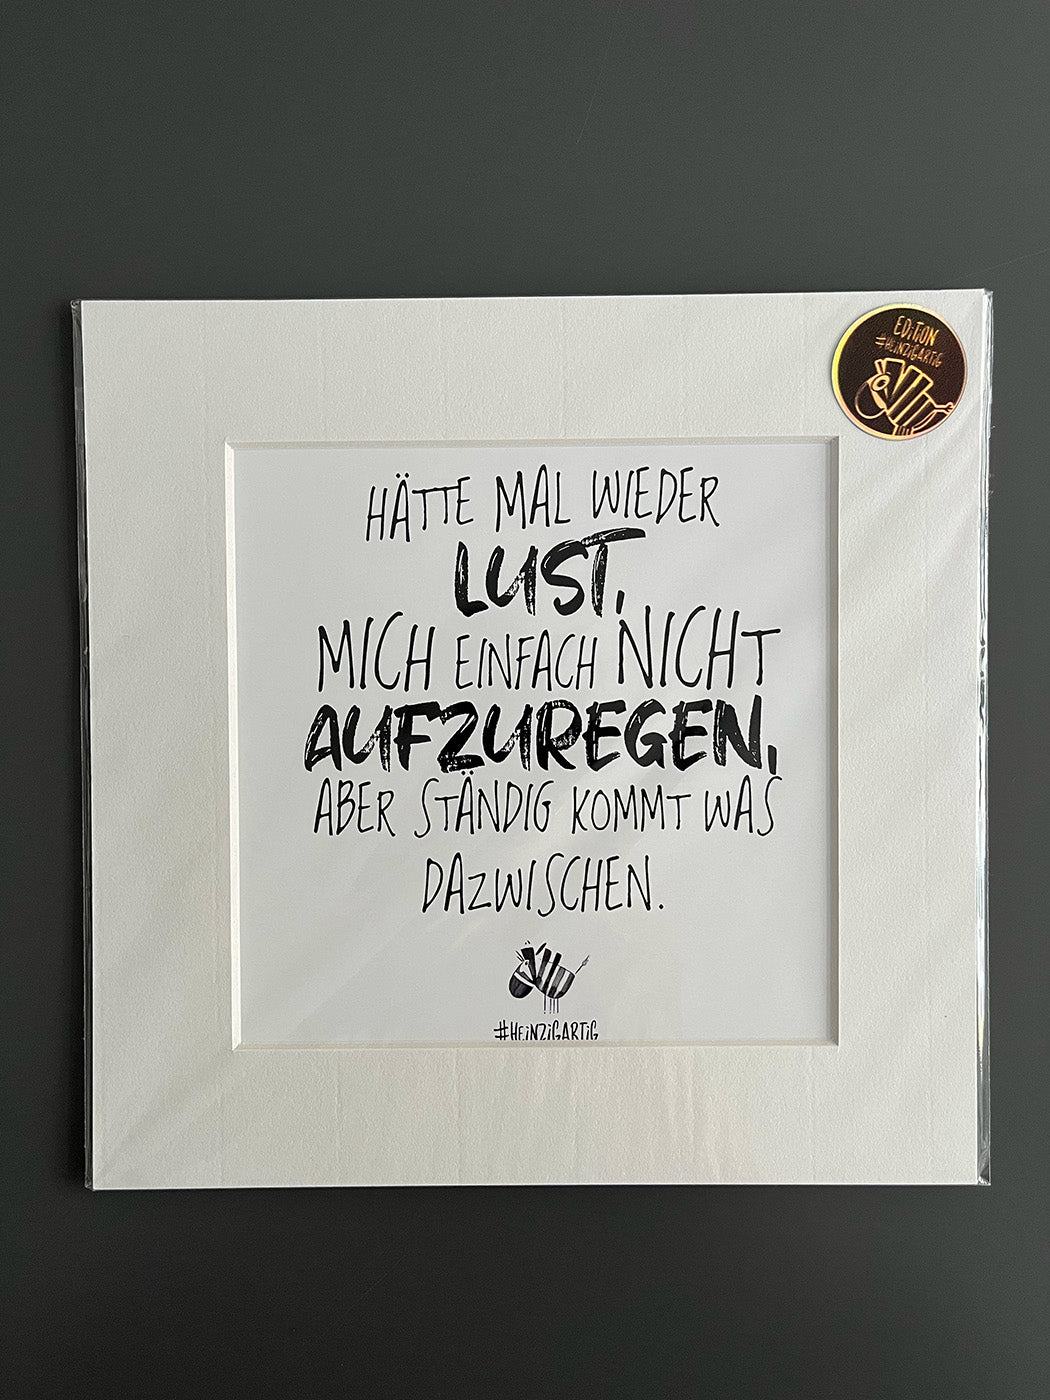 EDiTiON
#HEiNZiGARTiG
HÄTTE MAL WIEDER
LUST,
MICH EINFACH NICHT
AUFZUREGEN,
ABER STÄNDIG KOMMT WAS
DAZWISCHEN.
#HEiNZiGARTiG